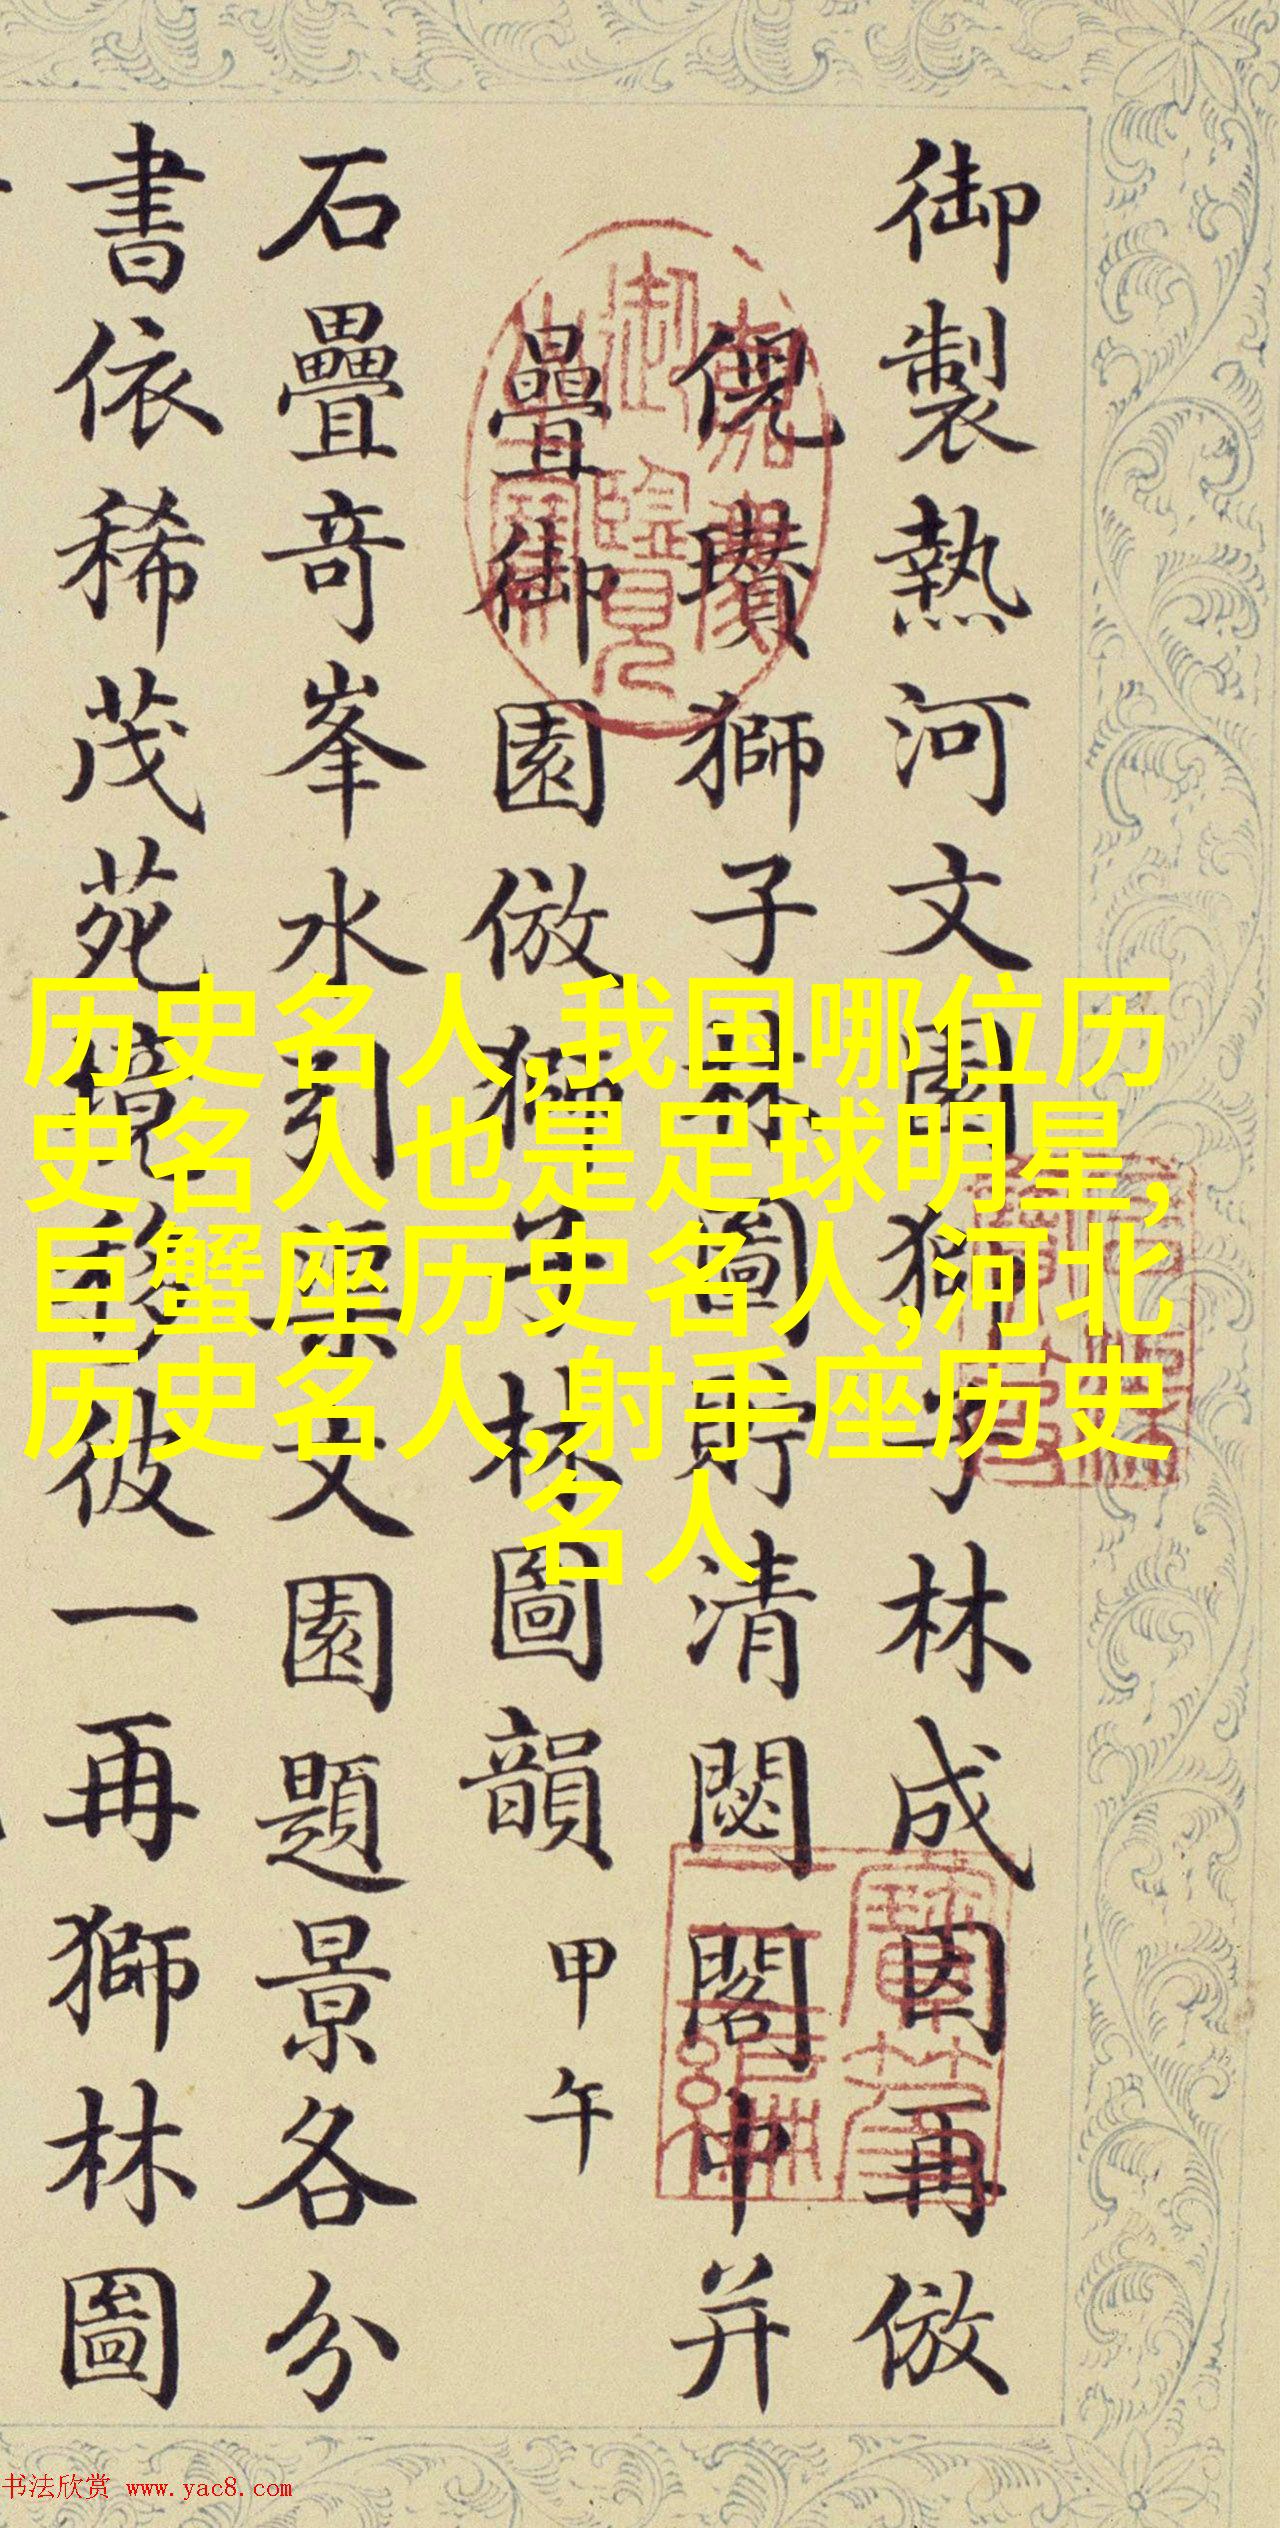 御製熱河文園獅子林成因再倣
倪瓚獅子林圖貯清閟閣中并
疊御園倣獅子林圖韻 甲午
石疊奇峯水引渠文園題景各分
書依稀茂苑鏡移彼一再獅林圖
历史名人,我国哪位历
史名人也是足球明星,
巨蟹座历史名人,河北
历史名人,射手座历史
名人
书法欣赏 www.yac8.com